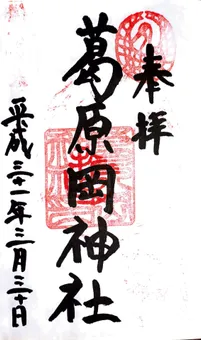 奉拝
葛原岡神社
平成三十一年三月三十日